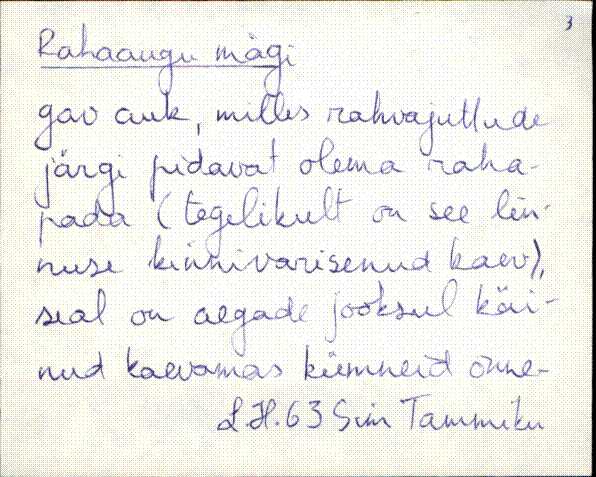 3
Rahaaugu mägi
gav auk, milles rahvajuttude
järgi pidavat olema raha-
pada (tegelikult on see lin-
nuse kinnivarisenud kaev),
seal on aegade jooksul käi-
nud kaevamas kümneid õnne-
L.H. 63 Sim Tammiku